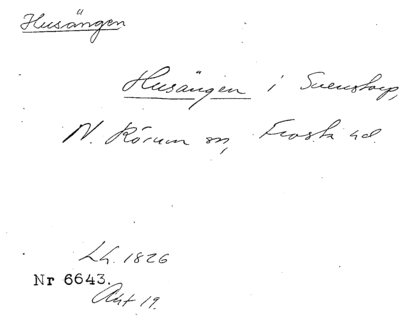 Husängen
Husängen i Svenstorp,
N. Rörum sn, Frosta hd.
Lh. 1826
Nr 6643.
Akt 19.